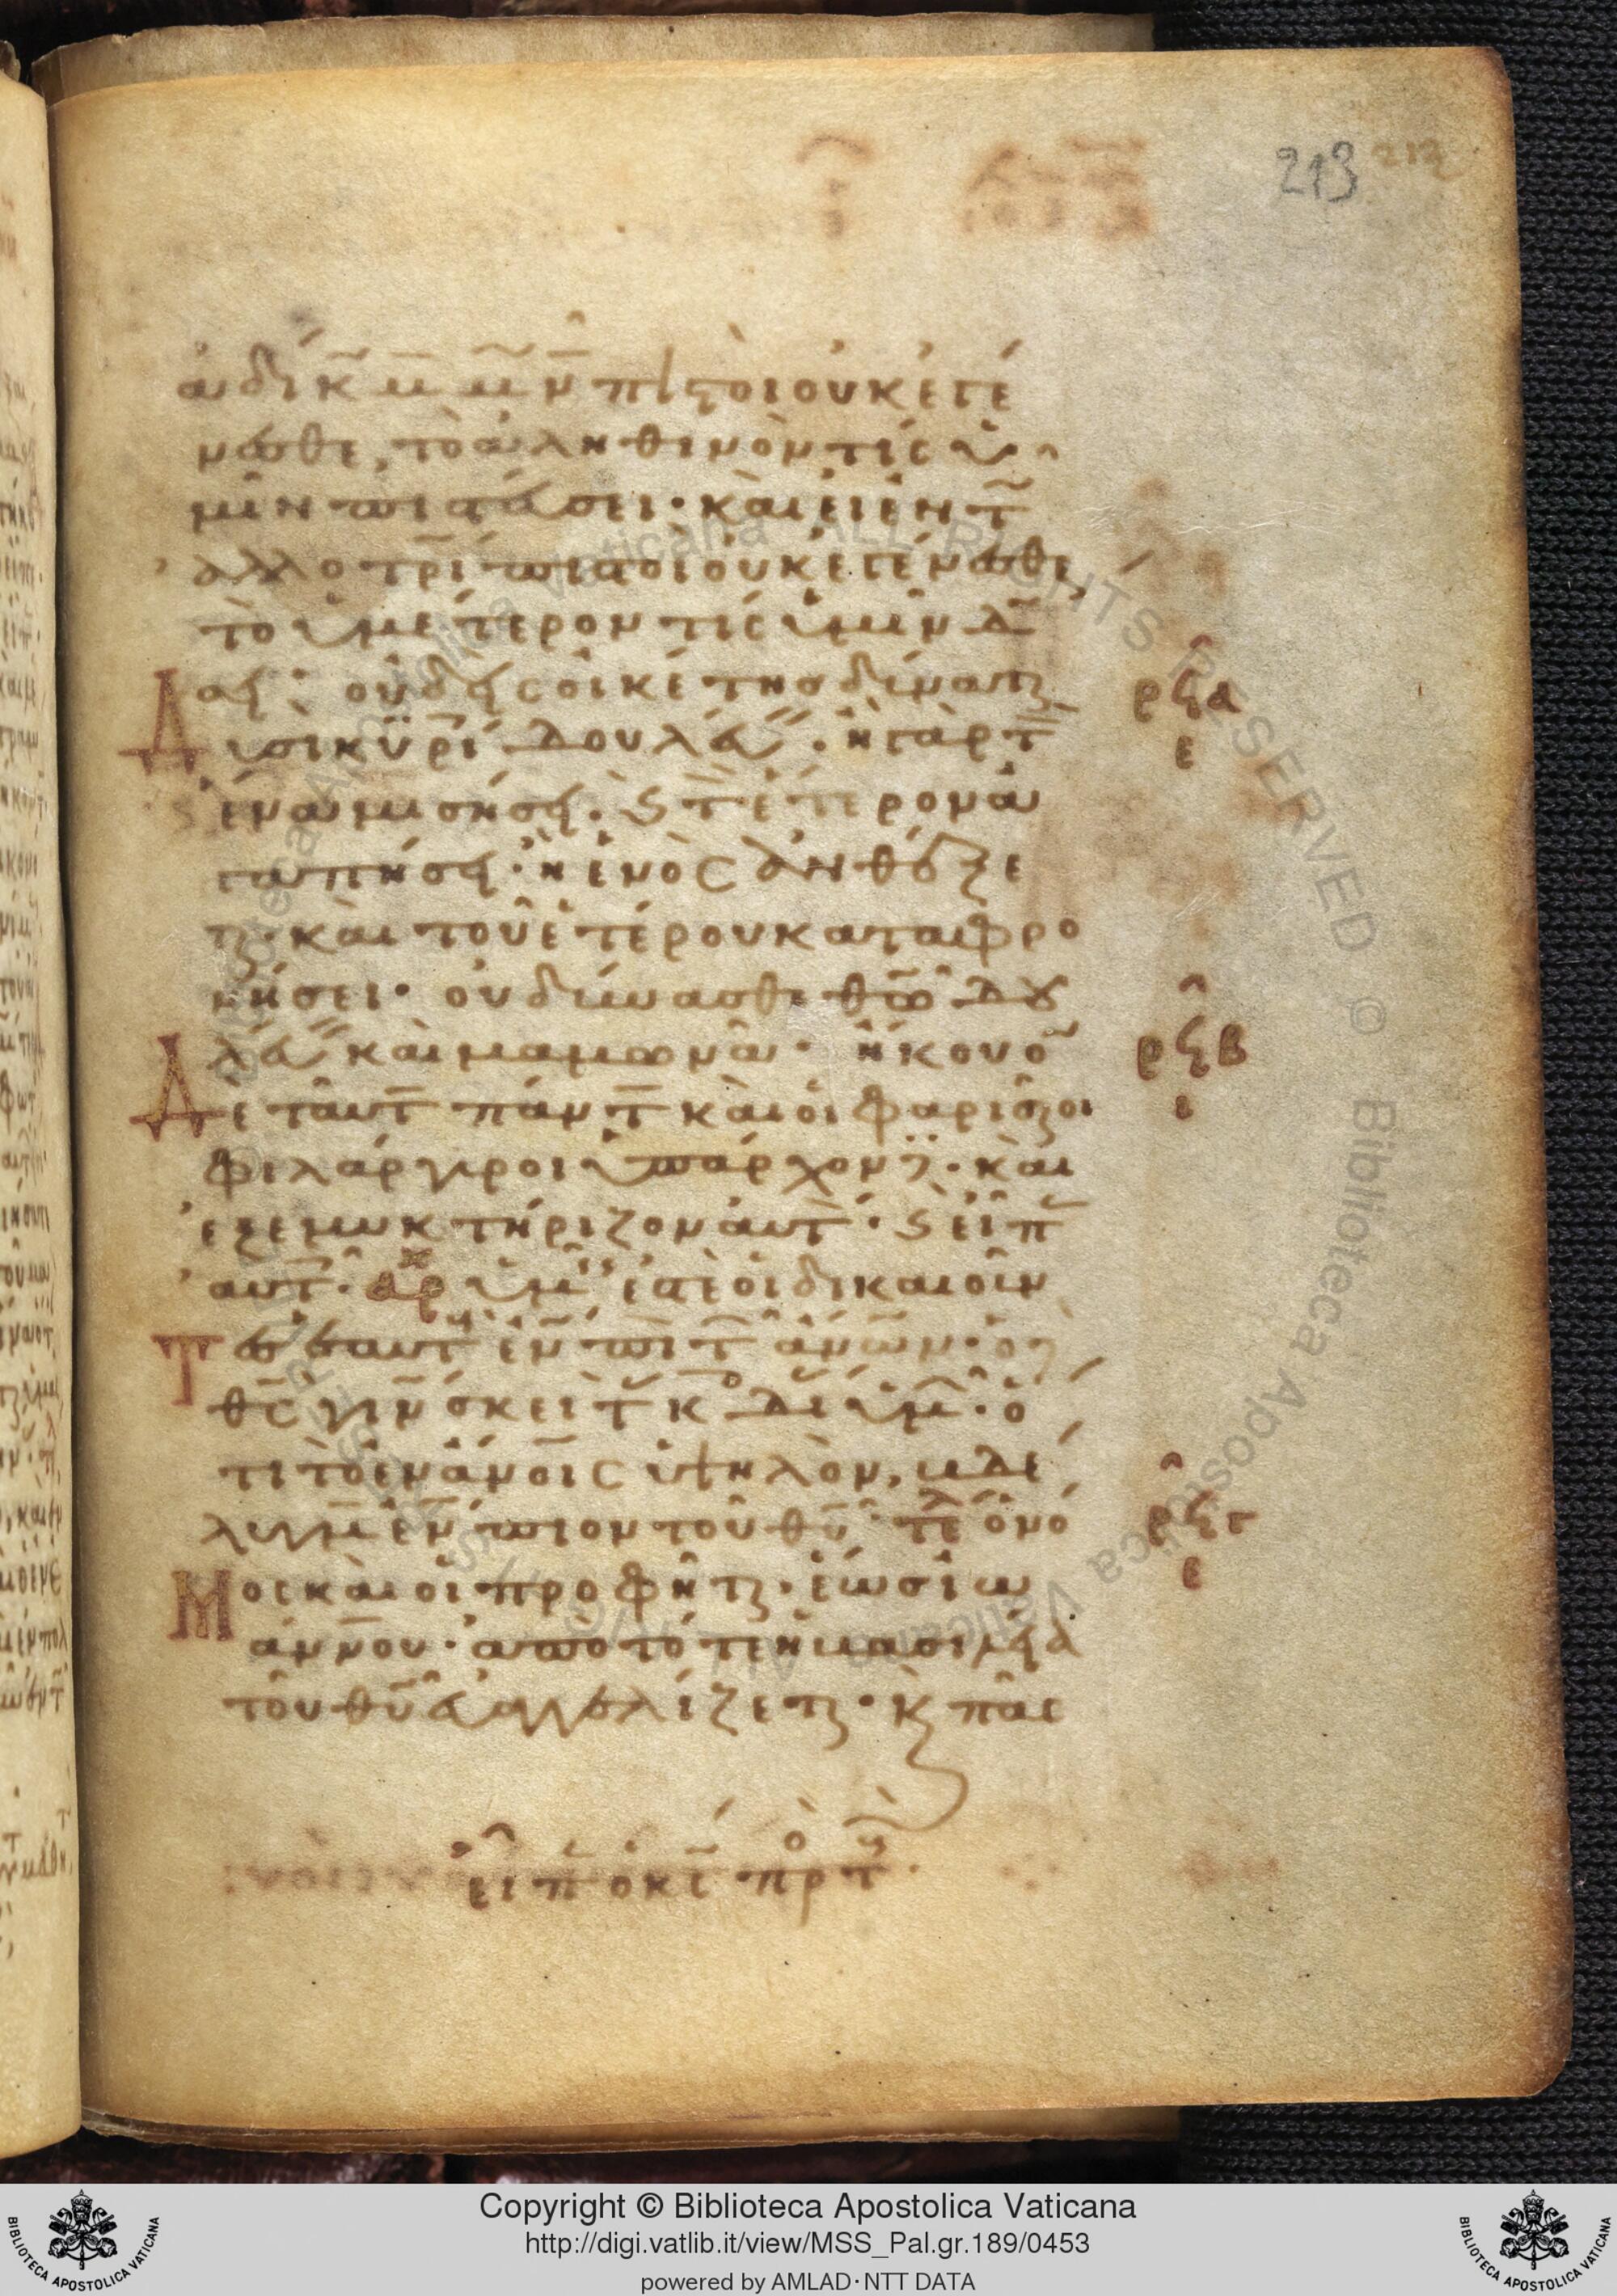 213 212
ἀδίκ μ μ ν πιστοὶ οὐκ ἐγέ
νεσθε, τὸ ἀληθινὸν τίς ὑ
μῖν πιστεύσει· καὶ εἰ ἐν τ
ἀλλοτρί πιστοὶ οὐκ ἐγένεσθε
τὸ ὑμέτερον τίς ὑμῖν δ
σει· οὐδεὶς οἰκέτης δύναται
Δυσὶ κυρί δουλεύ· ἢ γὰρ τ
ἕνα μισήσει· καὶ τ ἕτερον ἀ
γαπήσει· ἢ ἑνὸς ἀνθέξε
ται· καὶ τοῦ ἑτέρου καταφρο
νήσει· οὐ δύνασθε θῶ δου
λεύ καὶ μαμωνᾶ· ἤκουο
Δὲ ταῦτ πάντ καὶ οἱ φαρισαῖοι
φιλάργυροι ὑπάρχοντες· καὶ
ἐξεμυκτήριζον αὐτ· καὶ εἶπ
αὐτ· ὑμ ἐστὲ οἱ δικαιοῦν
Τες ἑαυτ ἐν πι τ ἀνων· ὁ δ
θς γινσκει τ κ δι ὑμ· ὅ
τι τὸ ἐν ἀνοις ὑψηλὸν, βδέ
λυγμ ἐν πιον τοῦ θυ· τε ὁ νό
Μος καὶ οἱ προφῆται· ἕως ἰω
άννου· ἀπὸ τότε ἡ βασιλεία
τοῦ θυ εὐαγγελίζεται· καὶ πᾶς
εἶπ ὁ κς πρὸς τ
ρξα
ε
ρξβ
ι
ρξγ
ε
Copyright © Biblioteca Apostolica Vaticana
http://digi.vatlib.it/view/MSS_Pal.gr.189/0453
powered by AMLAD·NTT DATA
BIBLIOTECA APOSTOLICA VATICANA
BIBLIOTECA APOSTOLICA VATICANA